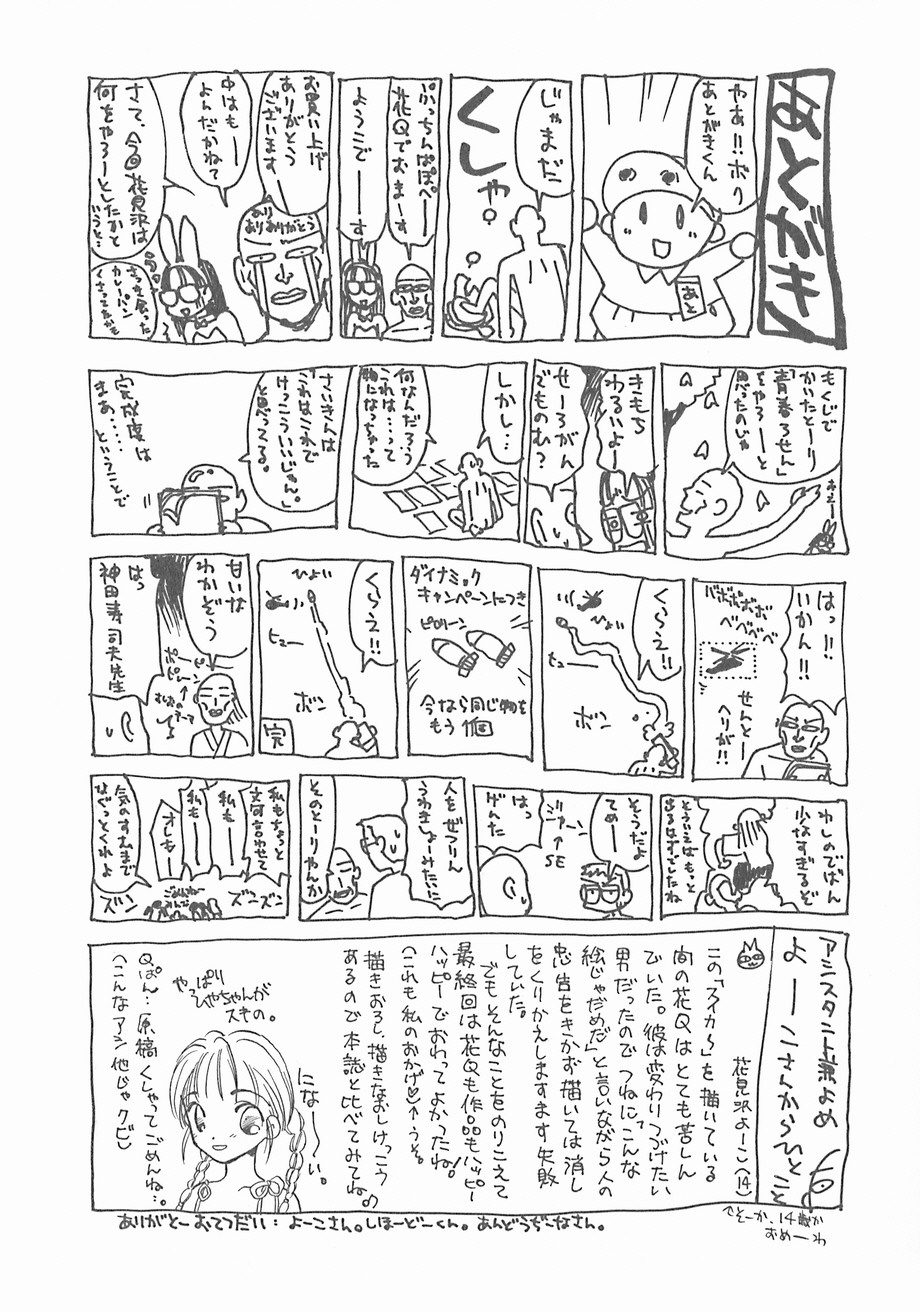 あとがき
やあ!!ボク
あとがきくん
あと
じゃまだ
くしゃ
ぷっちんぱぽぺー
花Qでおまーす
ようこでーーす
お買い上げ
ありがとう
ございます
中はもー
よんだかねて
さて、今回花見沢は
何をやろーとしたかと
いうと…
さっき食った
カレーパン
くさってたかも
もくじで
かいたとーり
「青春ろせん」
をやろーと
思ったのじゃ
おえー
きもち
わるいよー
せーろがん
でものむ?
しかし…
何なんだろう
「これは…」って
物になっちゃった
さいきんは
「これはこれで
けっこういいじゃん。」
と思ってる。
完成度は
まあ‥‥
ということで
はっ!!
いかん!!
バボボボボ
ベベベベ
せんとー
ヘリが!!
くらえ!!
ひょい
ヒュー
ボン
ダイナミック
キャンペーンにつき
ピロリーン
今なら同じ物を
もう1個
くらえ!!
ひょい
ヒュー
ボン
完
甘いな
わかぞう
はっ
神田寿司夫先生
わしのでばん
少なすぎるぞ
とういうはもっと
出るはずでしたね
そうだよ
てめー
ジャーン
↑
SE
はっ
げんた
人をぜつりん
うわきしょーみたいに
そのとーりやんか
私もちょっと
文句言わせて
私もー
私もー
オレもー
気のすむまで
なぐっとくれよ
ごめんねー
みんな
ズン
ズンズン
アシスタント兼よめ
よーこさんからひとこと
花見沢よーこ(14)
この「スイカ〜」を描いている
間の花Qはとても苦しん
でいた。彼は変わりつづけたい
男だったのでつねに「こんな
絵じゃだめだ」と言いながら人の
忠告をきかず描いては消し
をくりかえしますます失敗
していた。
でもそんなことをのりこえて
最終回は花Qも作品もハッピー
ハッピーでおわってよかったね!
(これも私のおかげ♡)←うそ。
描きおろし、描きなおしけっこう
あるので本誌と比べてみてね♪
にな〜〜い。
やっぱり
ひやちゃんが
スキの。
Qぱん…原稿くしゃってごめんね…。
(こんなアシ他じゃクビ)
ありがとーおてつだい：よーこさん。しほーどーくん。あんどうぢーなさん。
↑そーか、14歳か
おめーわ